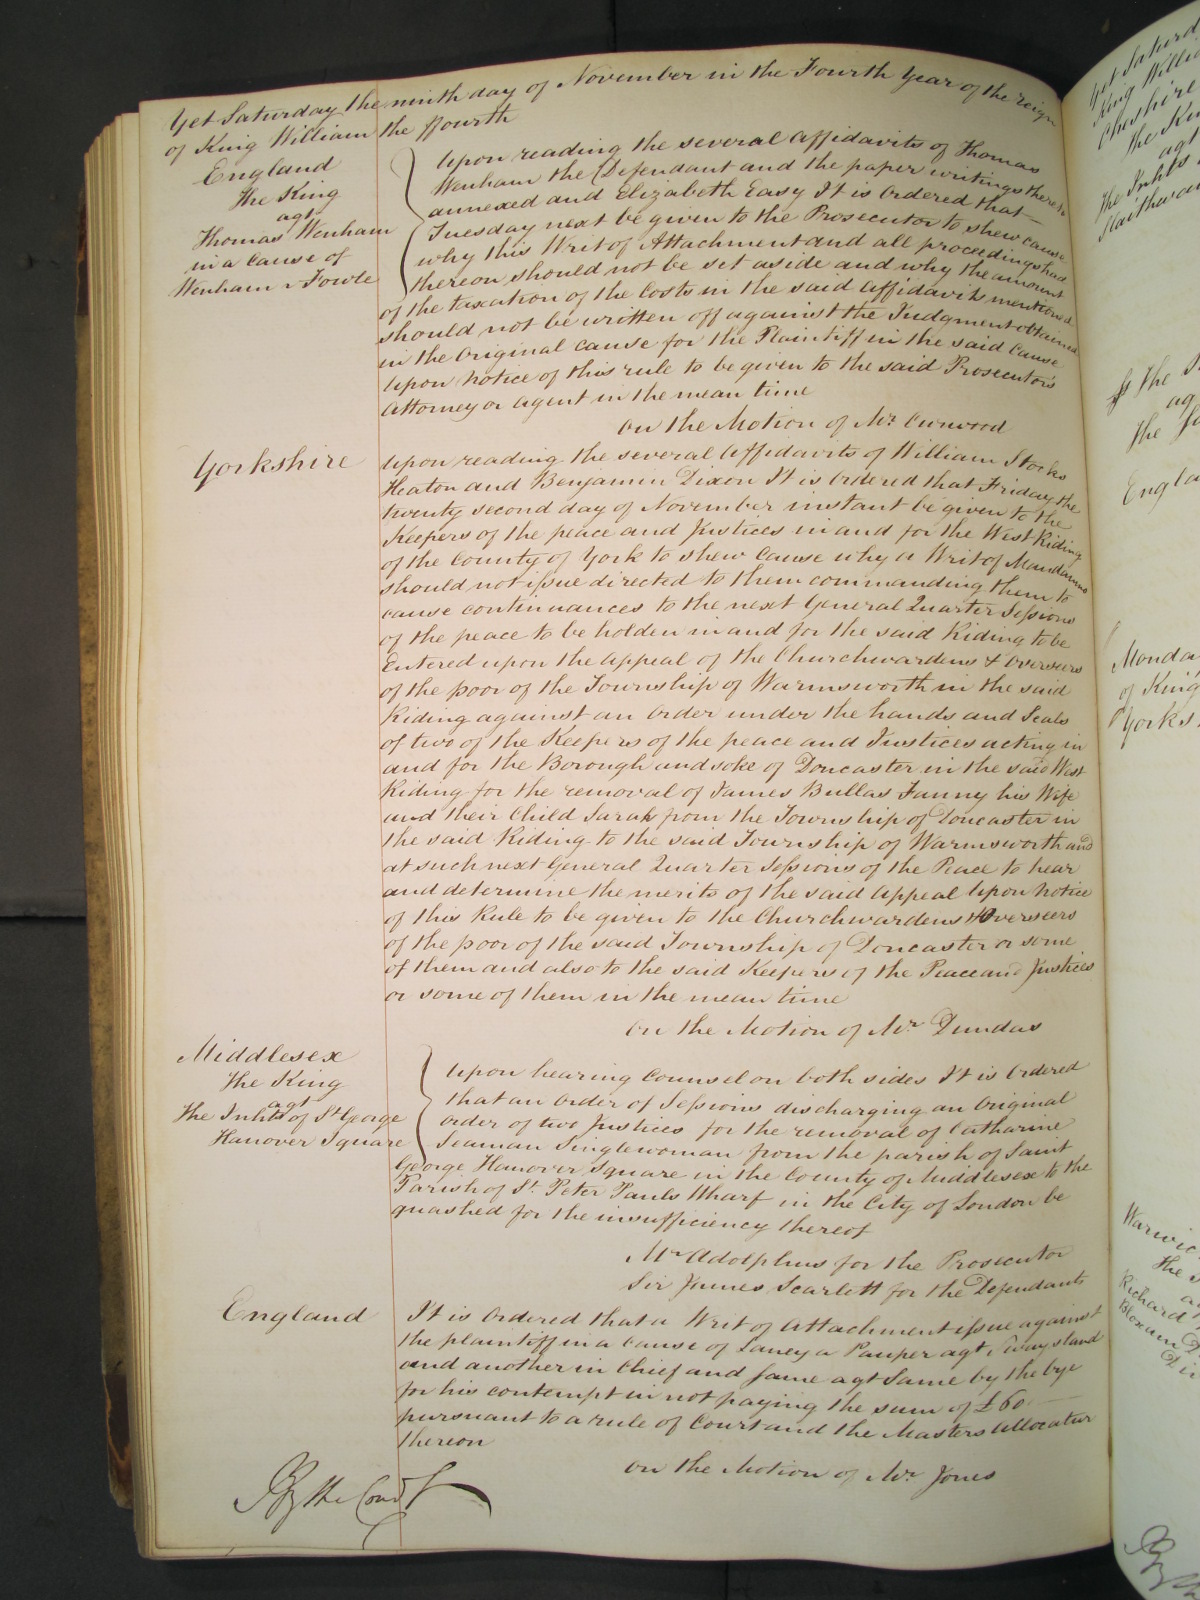 Yet Saturday the ninth day of November in the Fourth Year of the reign
of King William the ffourth
England
The King
agt
Thomas Wenham
in a cause of
Wenham v Fowle
Upon reading the several Affidavits of Thomas
Wenham the Defendant and the paper writings thereto
annexed and Elizabeth Easy It is Ordered that
Tuesday next be given to the Prosecutor to shew cause
why this Writ of Attachment and all proceedings had
thereon should not be set aside and why the amount
of the taxation of the Costs in the said affidavits mentioned
should not be written off against the Judgment obtained
in the Original cause for the Plaintiff in the said Cause
Upon notice of this rule to be given to the said Prosecutor's
Attorney or agent in the mean time
On the Motion of Mr. Curwood
Yorkshire
Upon reading the several Affidavits of William Stocks
Heaton and Benjamin Dixon It is Ordered that Friday the
twenty second day of November instant be given to the
Keepers of the peace and Justices in and for the West Riding
of the County of York to shew Cause why a Writ of Mandamus
should not issue directed to them commanding them to
cause continuances to the next General Quarter Sessions
of the peace to be holden in and for the said Riding to be
Entered upon the Appeal of the Churchwardens & Overseers
of the poor of the Township of Warmsworth in the said
Riding against an Order under the hands and Seals
of two of the Keepers of the peace and Justices acting in
and for the Borough and soke of Doncaster in the said West
Riding for the removal of James Bullas Fanny his Wife
and their Child Sarah from the Township of Doncaster in
the said Riding to the said Township of Warmsworth and
at such next General Quarter Sessions of the Peace to hear
and determine the merits of the said Appeal Upon Notice
of this Rule to be given to the Churchwardens & Overseers
of the poor of the said Township of Doncaster or some
of them and also to the said Keepers of the Peace and Justices
or some of them in the mean time
On the Motion of Mr Dundas
Middlesex
The King
agt
The Inhts of St George
Hanover Square
Upon hearing Counsel on both sides It is Ordered
that an Order of Sessions discharging an Original
Order of two Justices for the removal of Catharine
Seaman Singlewoman from the parish of Saint
George Hanover Square in the County of Middlesex to the
Parish of St. Peter Pauls Wharf in the City of London be
quashed for the insufficiency thereof
Mr Adolphus for the Prosecutor
Sir James Scarlett for the Defendants
England
It is Ordered that a Writ of Attachment issue against
the plaintiff in a cause of Laney a Pauper agt
and another in Chief and same agt Same by the bye
for his contempt in not paying the sum of £60
pursuant to a rule of Court and the Masters Allocatur
thereon
On the Motion of Mr. Jones
By the Court
Yet Saturd
King Willi
Cheshire
the Kin
agt
The Inhts
the
ag
Engla
Monda
of King
Yorks
Warwic
the
Richard